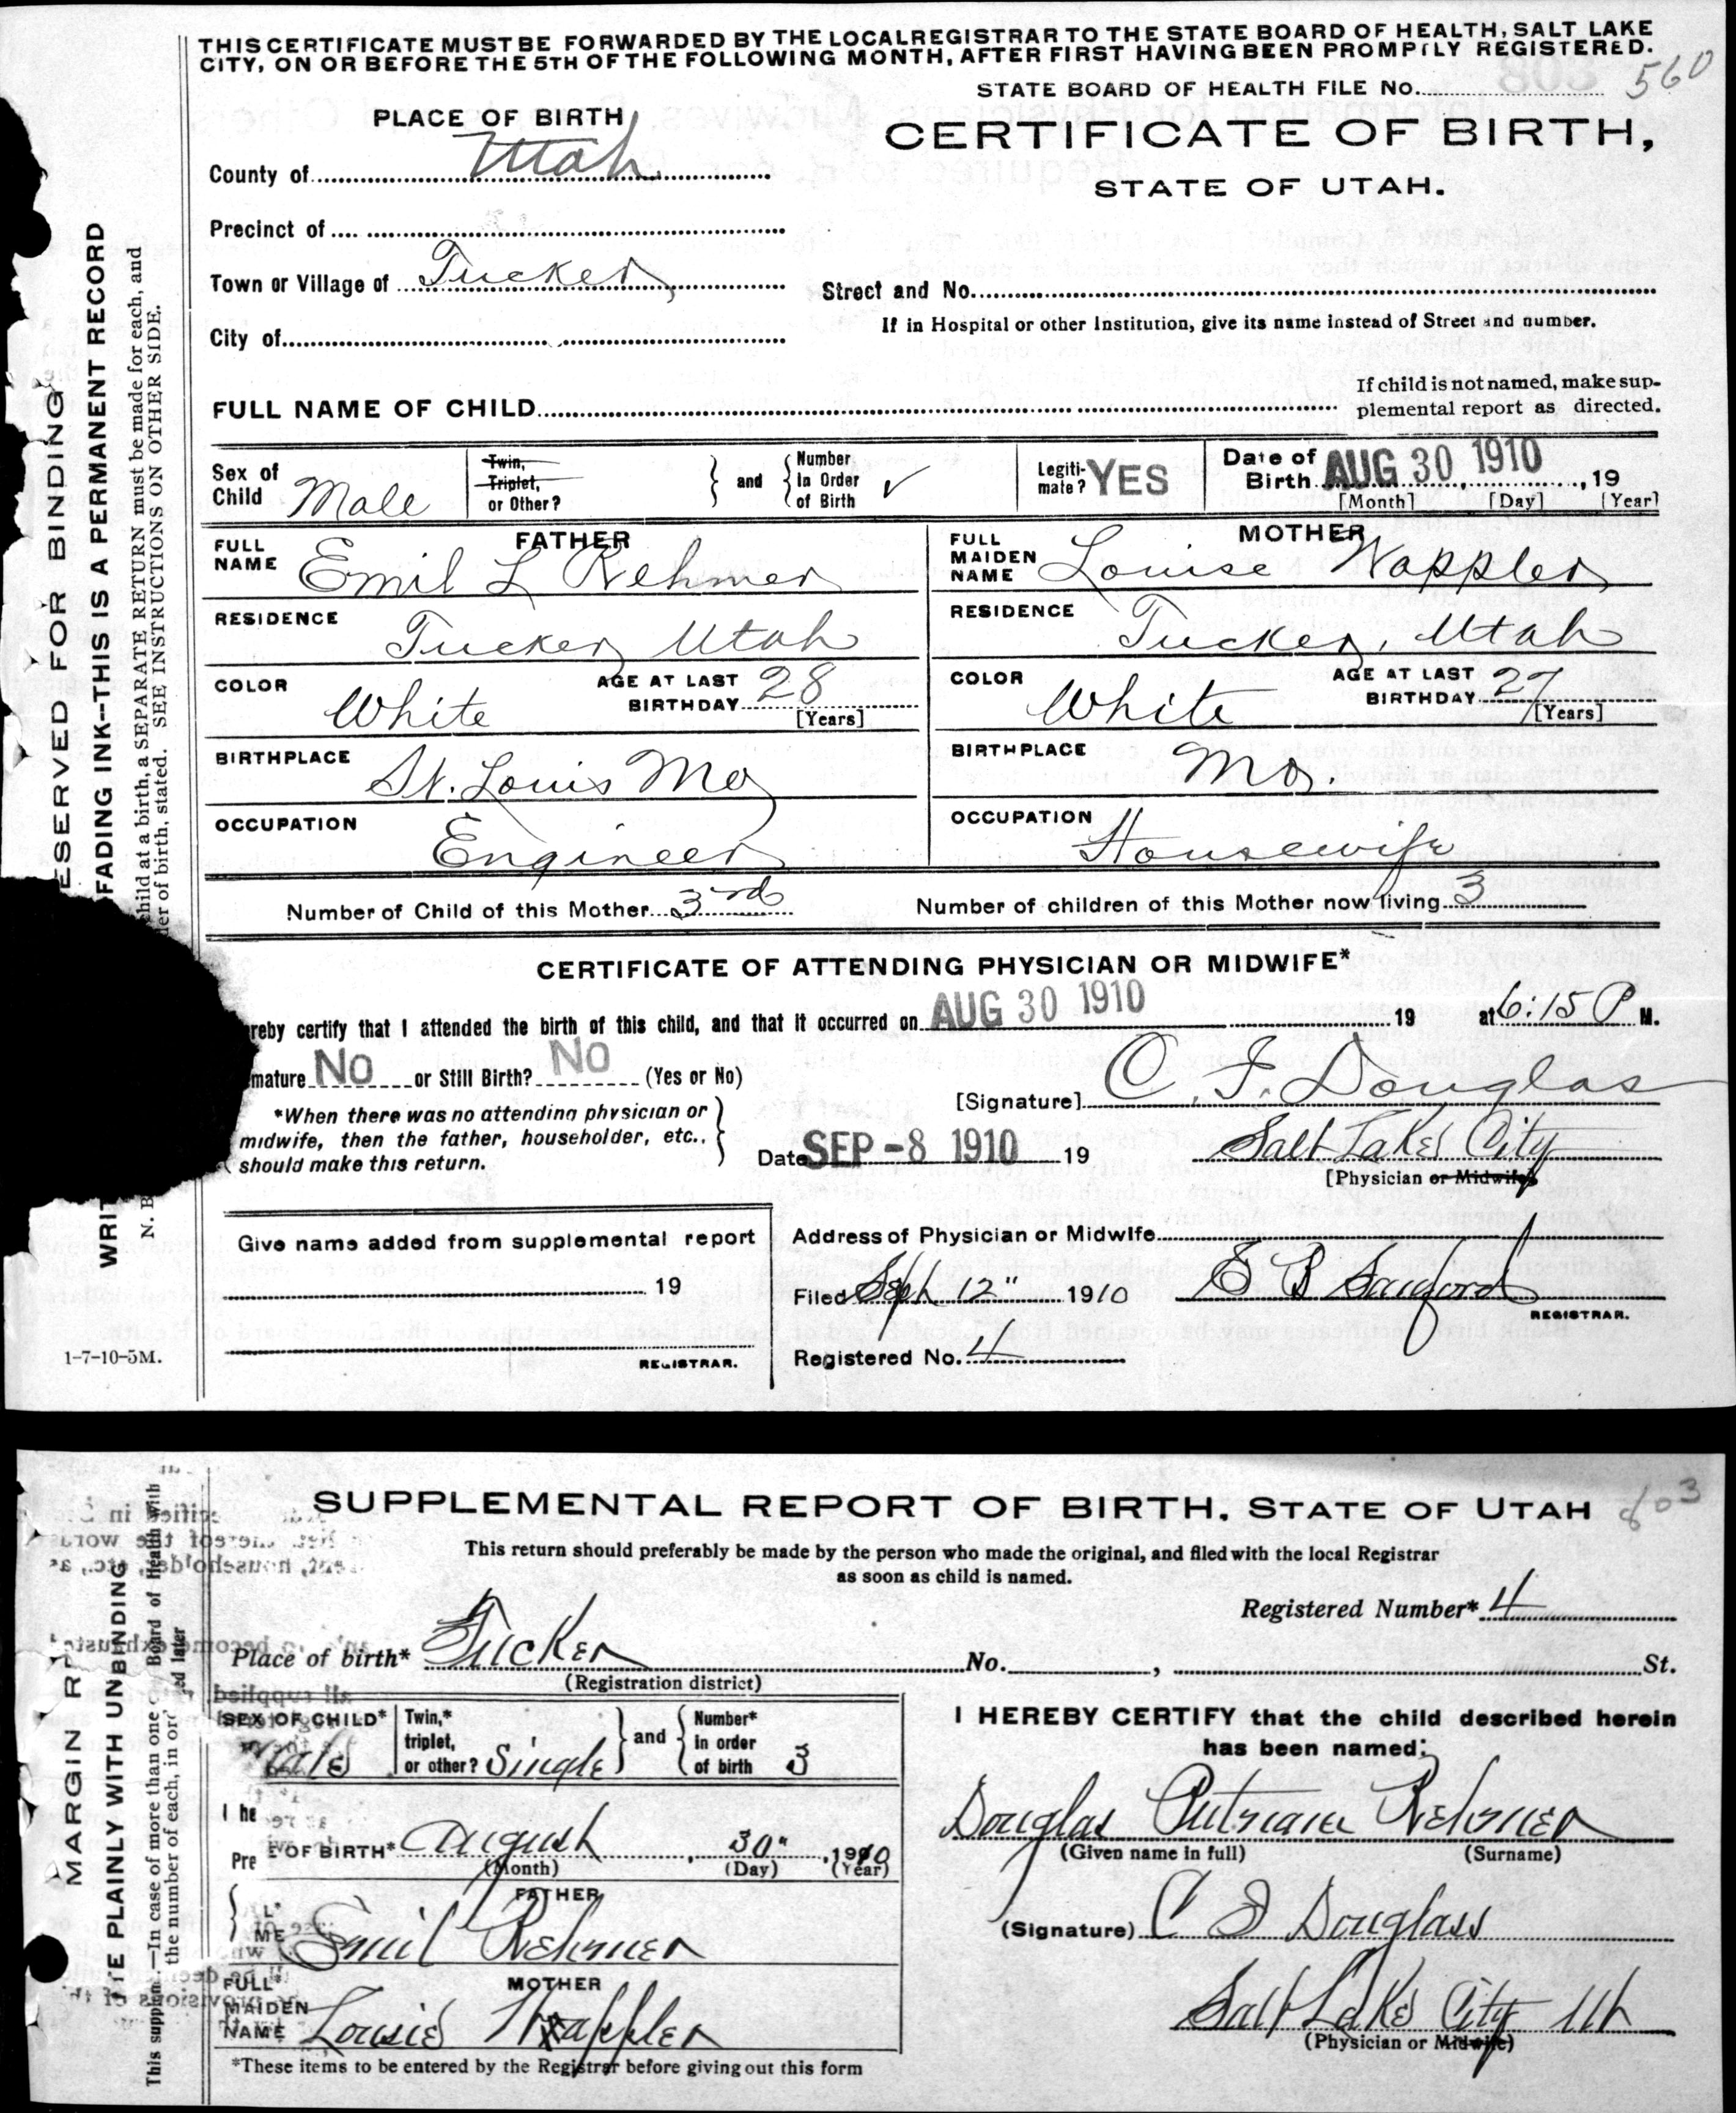 THIS CERTIFICATE MUST BE FORWARDED BY THE LOCAL REGISTRAR TO THE STATE BOARD OF HEALTH, SALT LAKE
CITY, ON OR BEFORE THE 5TH OF THE FOLLOWING MONTH, AFTER FIRST HAVING BEEN PROMPTLY REGISTERED.
STATE BOARD OF HEALTH FILE No. 560
PLACE OF BIRTH
CERTIFICATE OF BIRTH,
STATE OF UTAH.
County of Utah
Precinct of
Town or Village of Tucker
Street and No.
If in Hospital or other Institution, give its name instead of Street and number.
City of
FULL NAME OF CHILD
If child is not named, make sup-
plemental report as directed.
Sex of Child Male
Twin, Triplet, or Other?
and
Number In Order of Birth ✓
Legiti-mate? YES
Date of Birth AUG 30 1910, 19
[Month] [Day] [Year]
FATHER
FULL NAME Emil L Rehmer
RESIDENCE Tucker Utah
COLOR White AGE AT LAST BIRTHDAY 28 [Years]
BIRTHPLACE St. Louis Mo
OCCUPATION Engineer
MOTHER
FULL MAIDEN NAME Louise Wappler
RESIDENCE Tucker, Utah
COLOR White AGE AT LAST BIRTHDAY 27 [Years]
BIRTHPLACE Mo.
OCCUPATION Housewife
Number of Child of this Mother 3rd Number of children of this Mother now living 3
CERTIFICATE OF ATTENDING PHYSICIAN OR MIDWIFE*
ereby certify that I attended the birth of this child, and that it occurred on AUG 30 1910 19 at 6:15 P M.
mature No or Still Birth? No (Yes or No)
*When there was no attending physician or
midwife, then the father, householder, etc.,
should make this return.
[Signature] C. F. Douglas
Date SEP -8 1910 19
Salt Lake City
[Physician or Midwife]
Give name added from supplemental report
19
REGISTRAR.
Address of Physician or Midwife
Filed Sept 12" 1910 E B Sanford
REGISTRAR.
Registered No. 4
1-7-10-5M.
ESERVED FOR BINDING
FADING INK--THIS IS A PERMANENT RECORD
WRIT
child at a birth, a SEPARATE RETURN must be made for each, and
er of birth, stated. SEE INSTRUCTIONS ON OTHER SIDE.
N. B
SUPPLEMENTAL REPORT OF BIRTH, STATE OF UTAH 803
This return should preferably be made by the person who made the original, and filed with the local Registrar
as soon as child is named.
Registered Number* 4
Place of birth* Tucker No. , St.
(Registration district)
SEX OF CHILD* Male
Twin,* triplet, or other? Single
and
Number* in order of birth 3
I he
Pre
E OF BIRTH* August, 30", 1910
(Month) (Day) (Year)
FATHER
L*
ME Emil Rehmer
MOTHER
FULL* MAIDEN NAME Louise Wappler
*These items to be entered by the Registrar before giving out this form
I HEREBY CERTIFY that the child described herein
has been named:
Douglas Putnam Rehmer
(Given name in full) (Surname)
(Signature) C F Douglass
Salt Lake City Ut
(Physician or Midwife)
MARGIN R
TE PLAINLY WITH UNBINDING
This supplem .—In case of more than one
Board of Health with
the number of each, in or
ed later